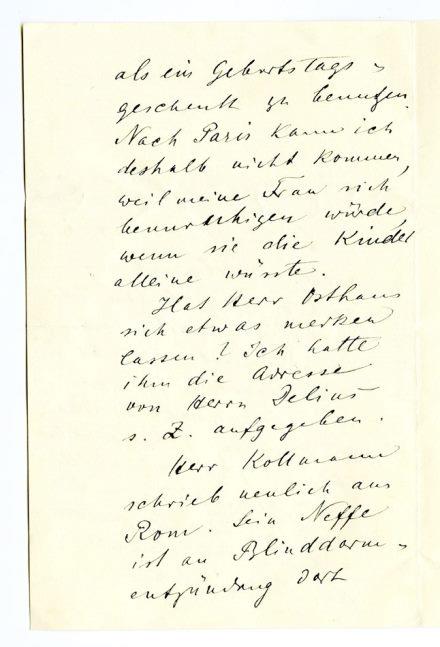 als ein Geburtstags-
geschenk zu benutzen.
Nach Paris kann ich
deshalb nicht kommen,
weil meine Frau sich
beunruhigen würde,
wenn sie die Kinder
alleine wüsste.
Hat Herr Osthaus
sich etwas merken
lassen? Ich hatte
ihm die Adresse
von Herrn Delius
s. Z. aufgegeben.
Herr Kollmann
schrieb neulich aus
Rom. Sein Neffe
ist an Blinddarm-
entzündung dort